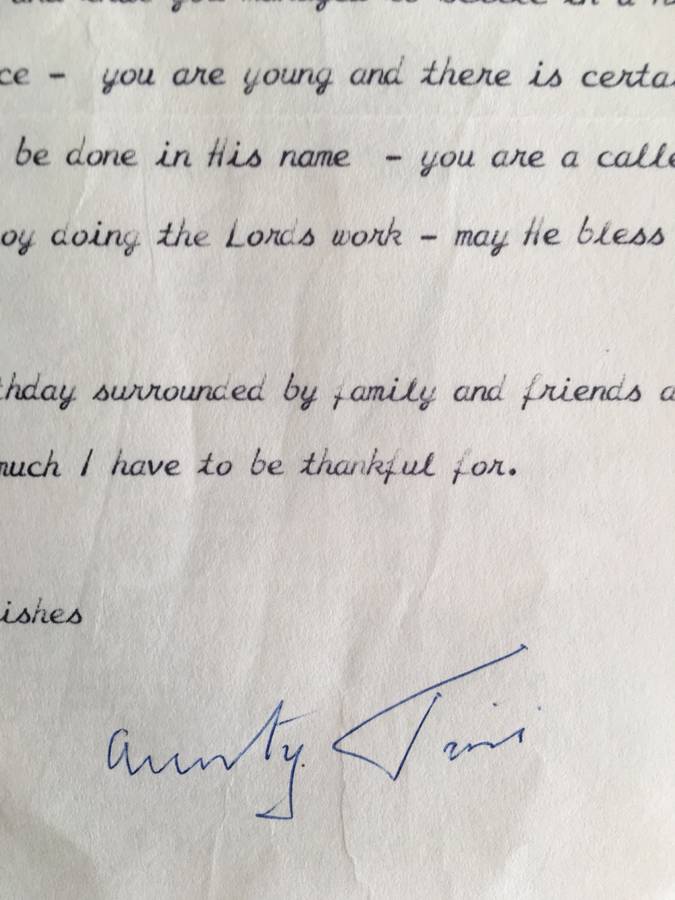 ce - you are young and there is certa
be done in His name - you are a calle
oy doing the Lords work - may He bless
thday surrounded by family and friends a
much I have to be thankful for.
ishes
Aunty Tini